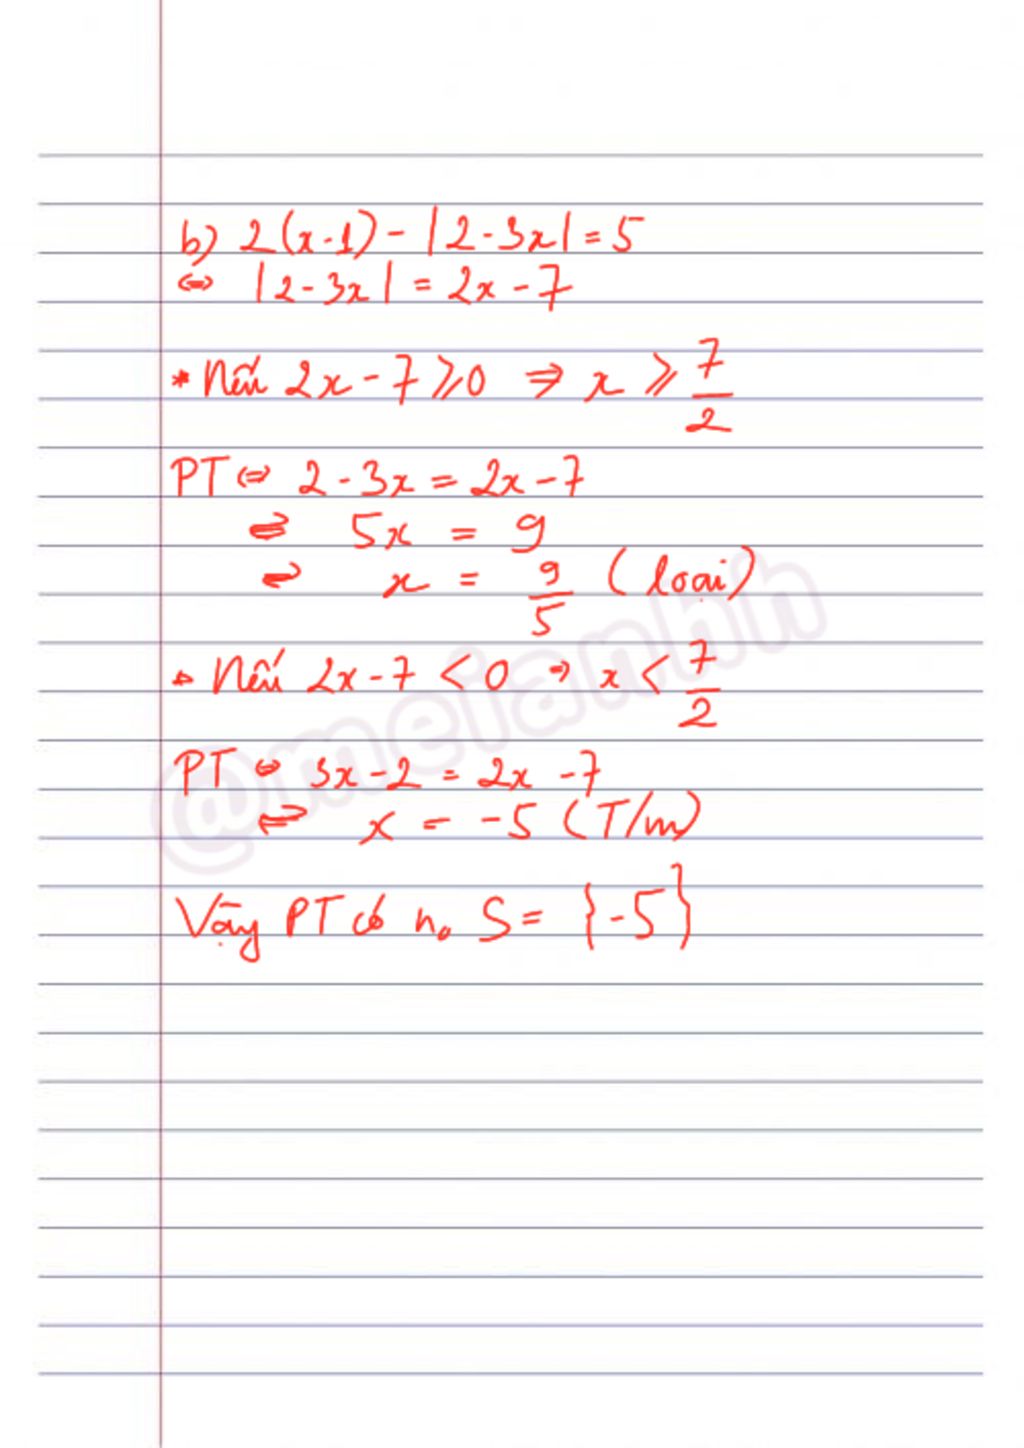 b) 2(x-1) - |2-3x| = 5
⇔ |2-3x| = 2x-7
* Nếu 2x-7 ≥ 0 ⇒ x ≥ 7/2
PT ⇔ 2-3x = 2x-7
⇔ 5x = 9
⇔ x = 9/5 (loại)
* Nếu 2x-7 < 0 ⇒ x < 7/2
PT ⇔ 3x-2 = 2x-7
⇔ x = -5 (T/m)
Vậy PT có no S = {-5}
@meianhh